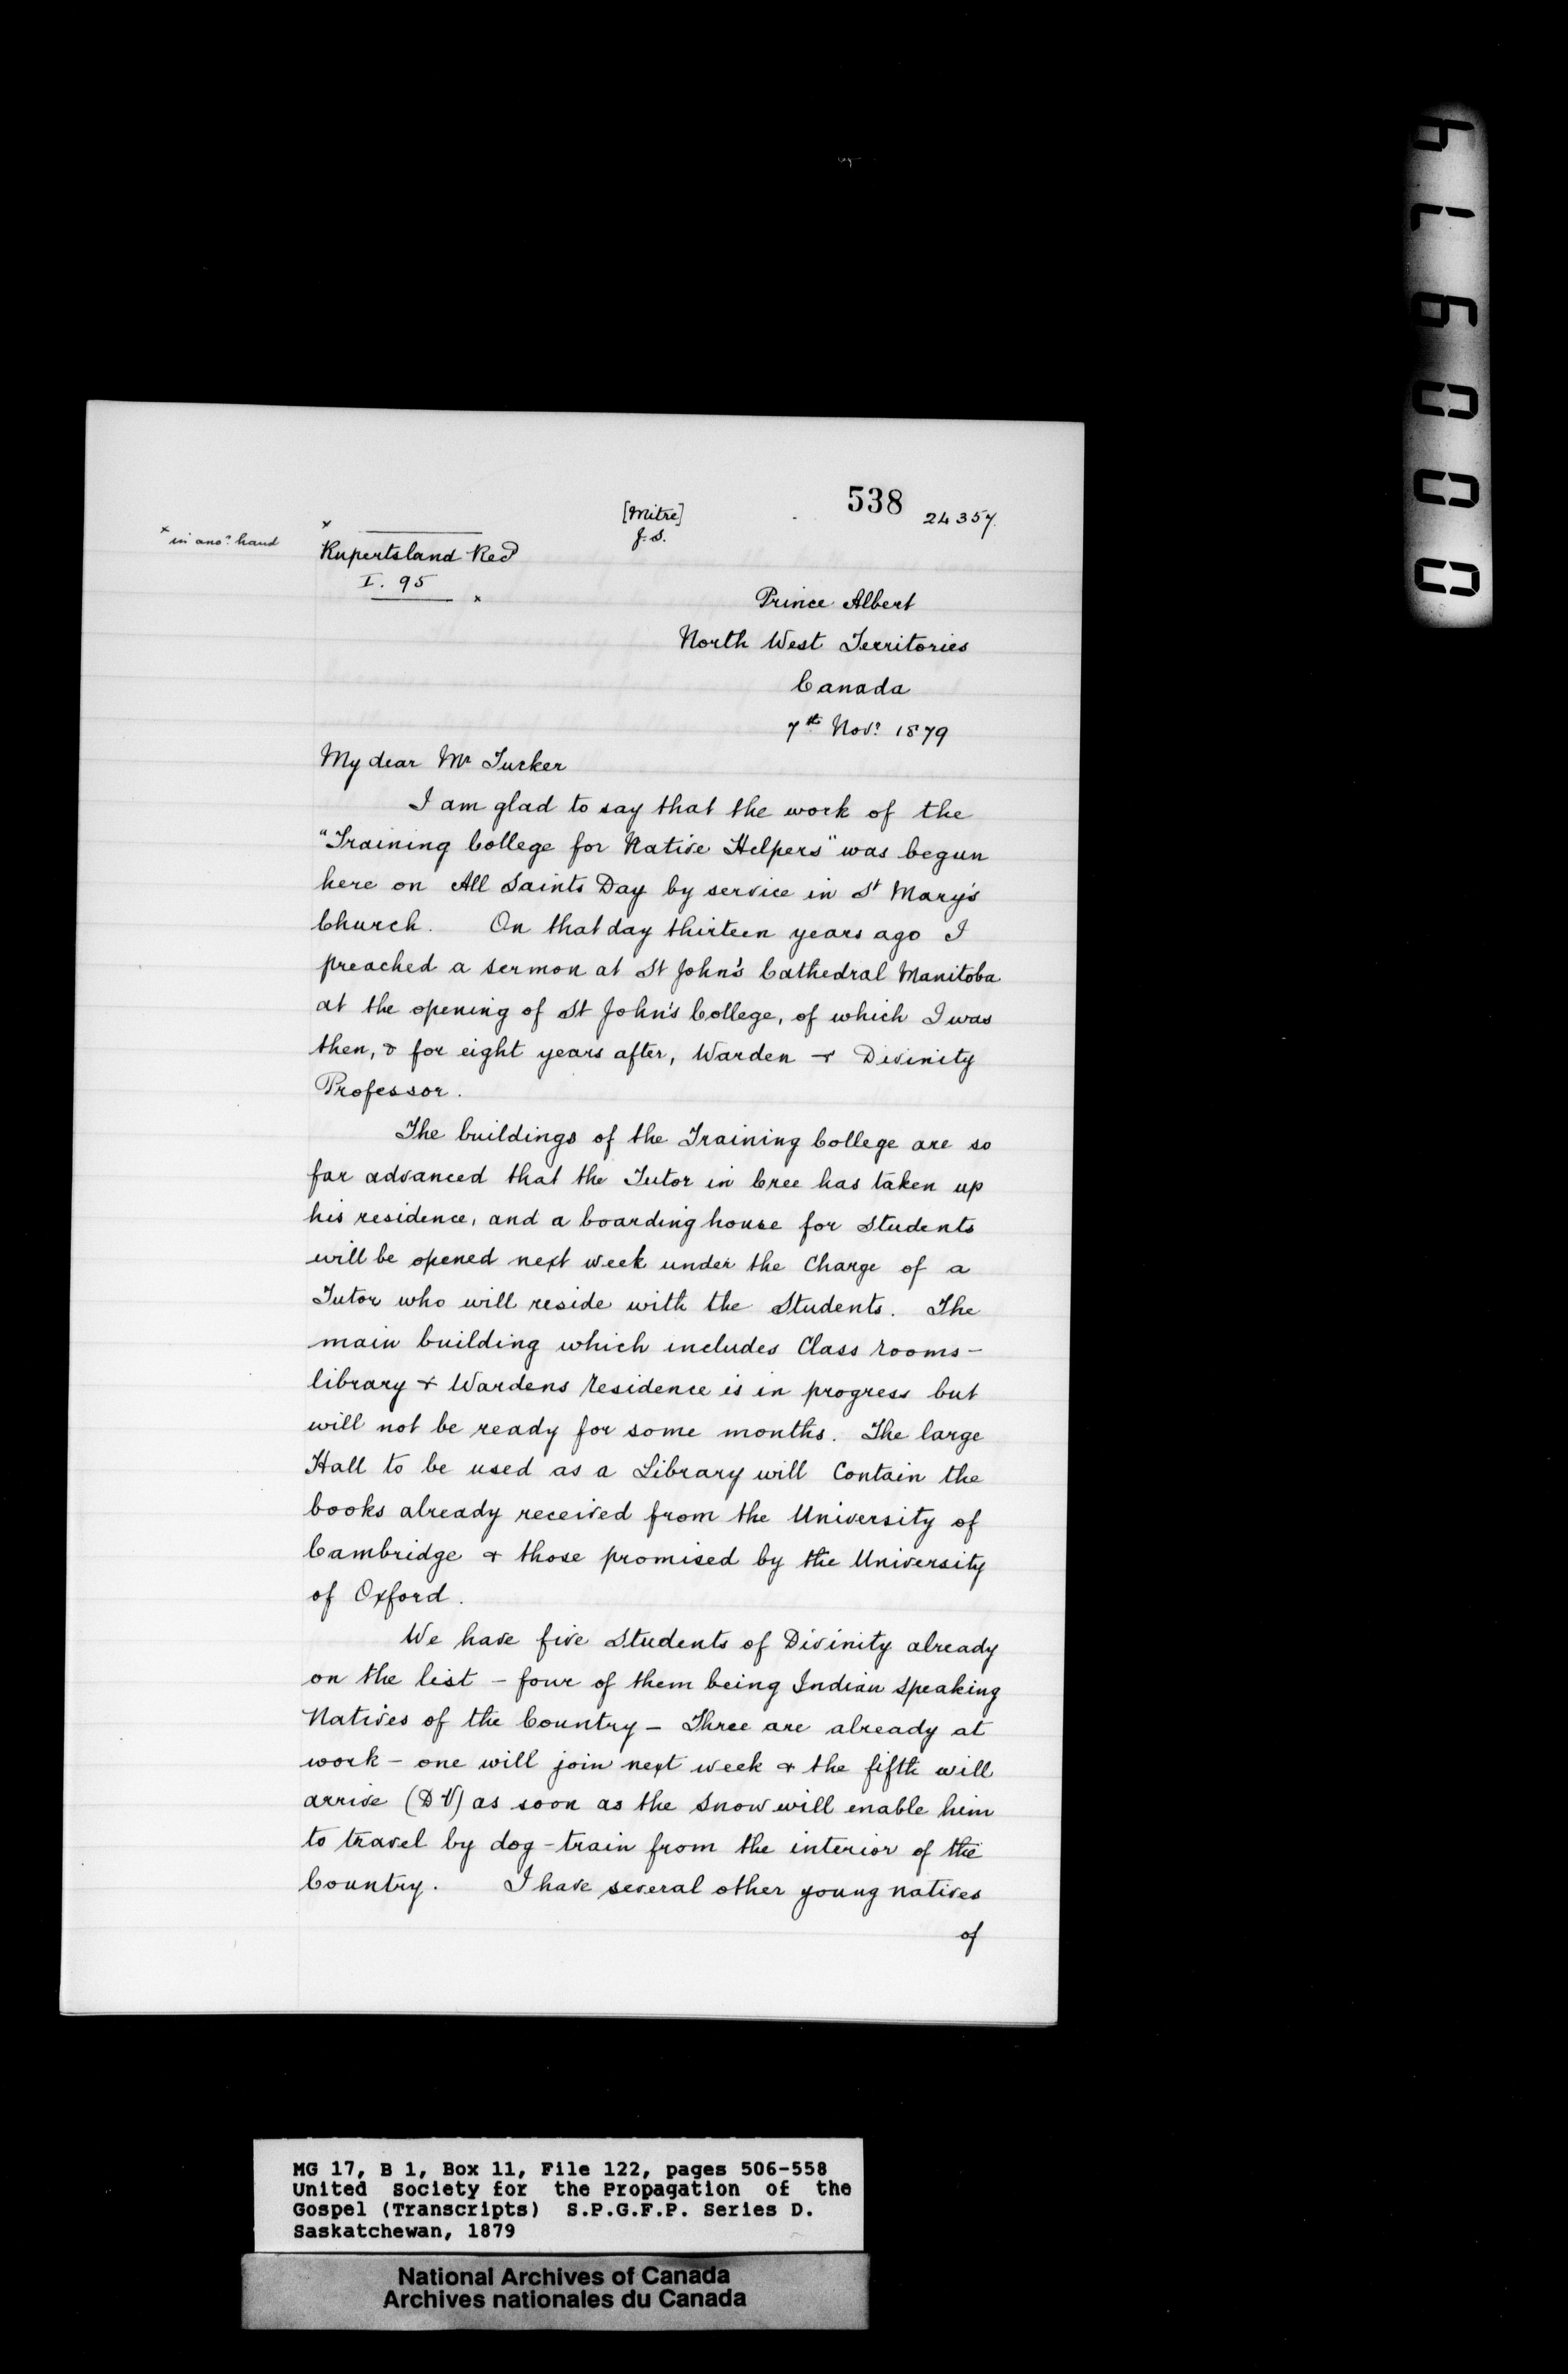 [Mitre]
J. S.
538
24357
x in ano.r hand
x
Rupertsland Recd
I. 95
x
Prince Albert
North West Territories
Canada
7th Nov.r 1879
My dear Mr Tucker
I am glad to say that the work of the
"Training College for Native Helpers" was begun
here on All Saints Day by service in St Mary's
Church. On that day thirteen years ago I
preached a sermon at St John's Cathedral Manitoba
at the opening of St John's College, of which I was
then, & for eight years after, Warden & Divinity
Professor.
The buildings of the Training College are so
far advanced that the Tutor in Cree has taken up
his residence, and a boarding house for Students
will be opened next week under the Charge of a
Tutor who will reside with the Students. The
main building which includes Class rooms -
library & Wardens residence is in progress but
will not be ready for some months. The large
Hall to be used as a Library will Contain the
books already received from the University of
Cambridge & those promised by the University
of Oxford.
We have five Students of Divinity already
on the list - four of them being Indian speaking
Natives of the Country - Three are already at
work - one will join next week & the fifth will
arrive (D V) as soon as the snow will enable him
to travel by dog-train from the interior of the
Country. I have several other young natives
of
MG 17, B 1, Box 11, File 122, pages 506-558
United Society for the Propagation of the
Gospel (Transcripts) S.P.G.F.P. Series D.
Saskatchewan, 1879
National Archives of Canada
Archives nationales du Canada